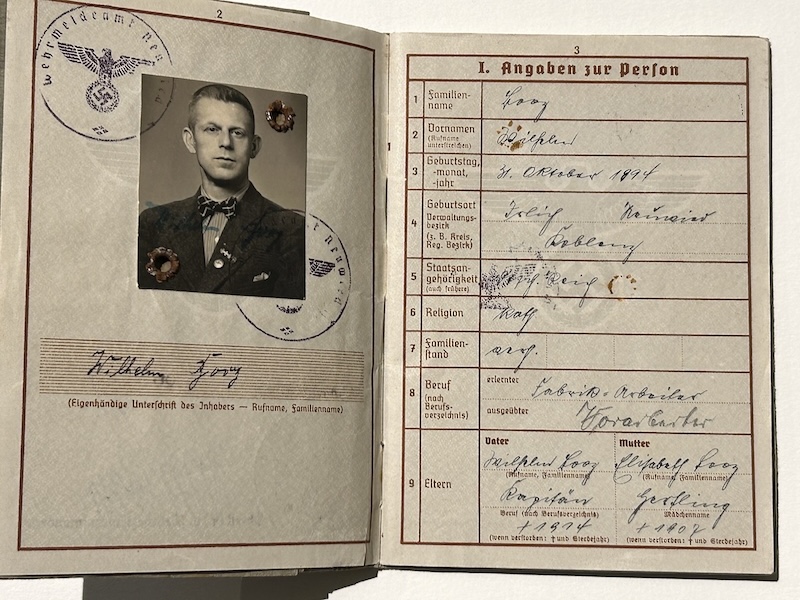 2
Wehrmeldeamt Neu
Wilhelm
(Eigenhändige Unterschrift des Inhabers — Rufname, Familienname)
3
I. Angaben zur Person
1 Familienname
2 Vornamen (Rufname unterstreichen) Wilhelm
3 Geburtstag, -monat, -jahr 31. Oktober 1894
4 Geburtsort Irlich Neuwied
Verwaltungsbezirk (z. B. Kreis, Reg. Bezirk) Koblenz
5 Staatsangehörigkeit (auch frühere) Reich
6 Religion kath
7 Familienstand verh.
8 Beruf (nach Berufsverzeichnis) erlernter Fabrik-Arbeiter
ausgeübter Vorarbeiter
9 Eltern
Vater Mutter
Wilhelm Elisabeth
(Rufname, Familienname) (Rufname, Familienname)
Kapitän Gertling
Beruf (nach Berufsverzeichnis) Mädchenname
† 1914 † 1907
(wenn verstorben: † und Sterbejahr) (wenn verstorben: † und Sterbejahr)